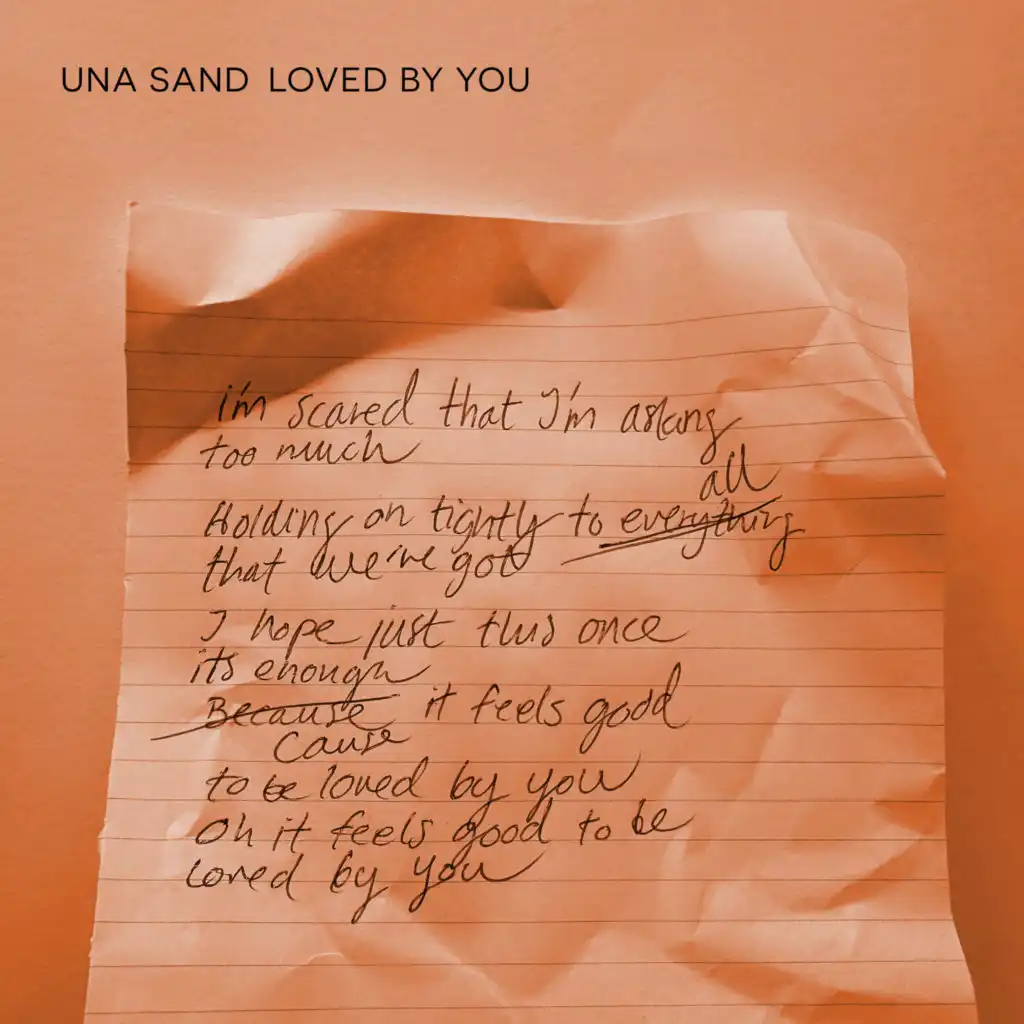 UNA SAND LOVED BY YOU
i'm scared that I'm asking
too much
all
Holding on tightly to everything
that we've got
I hope just this once
its enough
Because it feels good
Cause
to be loved by you
Oh it feels good to be
loved by you